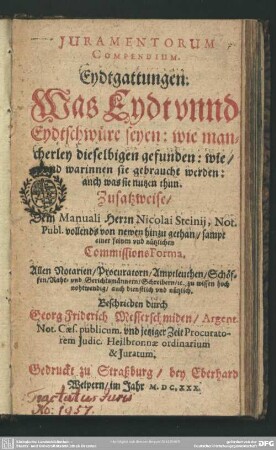 JURAMENTORUM
COMPENDIUM.
Eydtgattungen:
Was Eydt vnnd
Eydtschwüre seyen: wie man-
cherley dieselbigen gefunden: wie/
vnd warinnen sie gebraucht werden:
auch was sie nutzen thun.
Zusatzweise/
Dem Manuali Herrn Nicolai Steinij, Not.
Publ. vollends von newen hinzu gethan/ sampt
einer feinen vnd nützlichen
Commissions Forma.
Allen Notarien/ Procuratorn/ Amptleuthen/ Schöf-
fen/ Raths- vnd Gerichtsmännern/ Schreibern/ ꝛc. zu wissen hoch
nohtwendig/ auch dienstlich vnd nützlich.
Beschrieben durch
Georg Friderich Messerschmiden/ Argent.
Not. Cæs. publicum. vnd jetziger Zeit Procurato-
rem Judic. Heilbronnæ ordinarium
& Juratum.
Gedruckt zu Straßburg/ bey Eberhard
Welpern/ im Jahr M. DC. XXX.
Tractatus Juris
No: 1957.